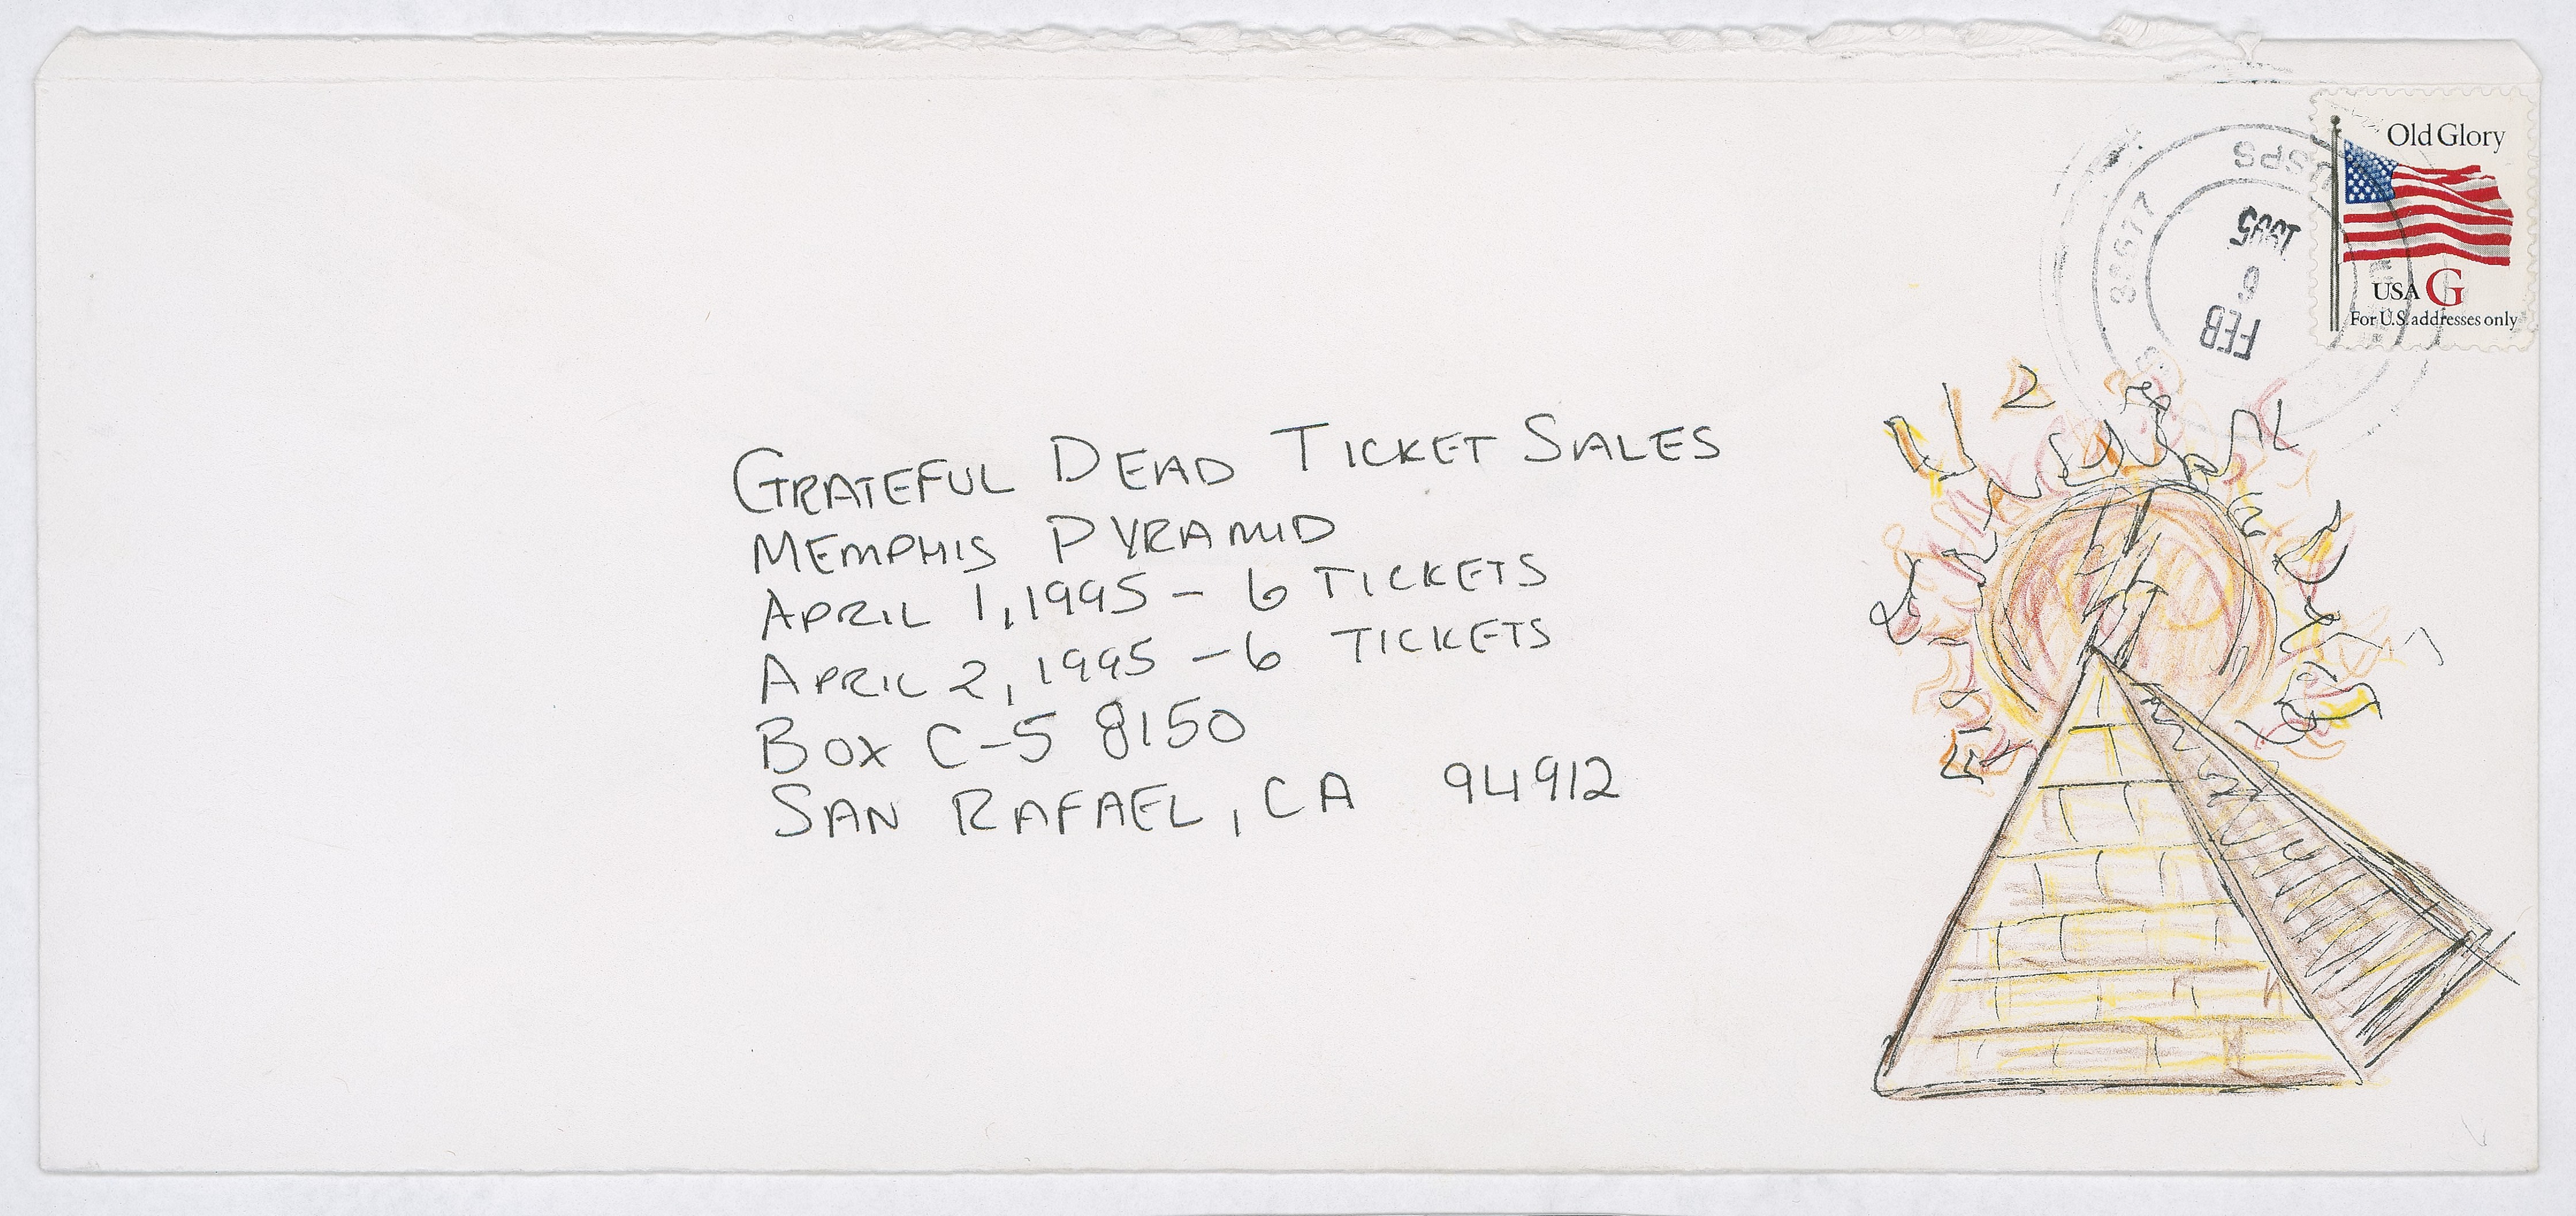 Old Glory
USPS
1995
6
FEB
USA G
For U.S. addresses only
GRATEFUL DEAD TICKET SALES
MEMPHIS PYRAMID
APRIL 1, 1995 - 6 TICKETS
APRIL 2, 1995 - 6 TICKETS
BOX C-S 8150
SAN RAFAEL, CA 94912